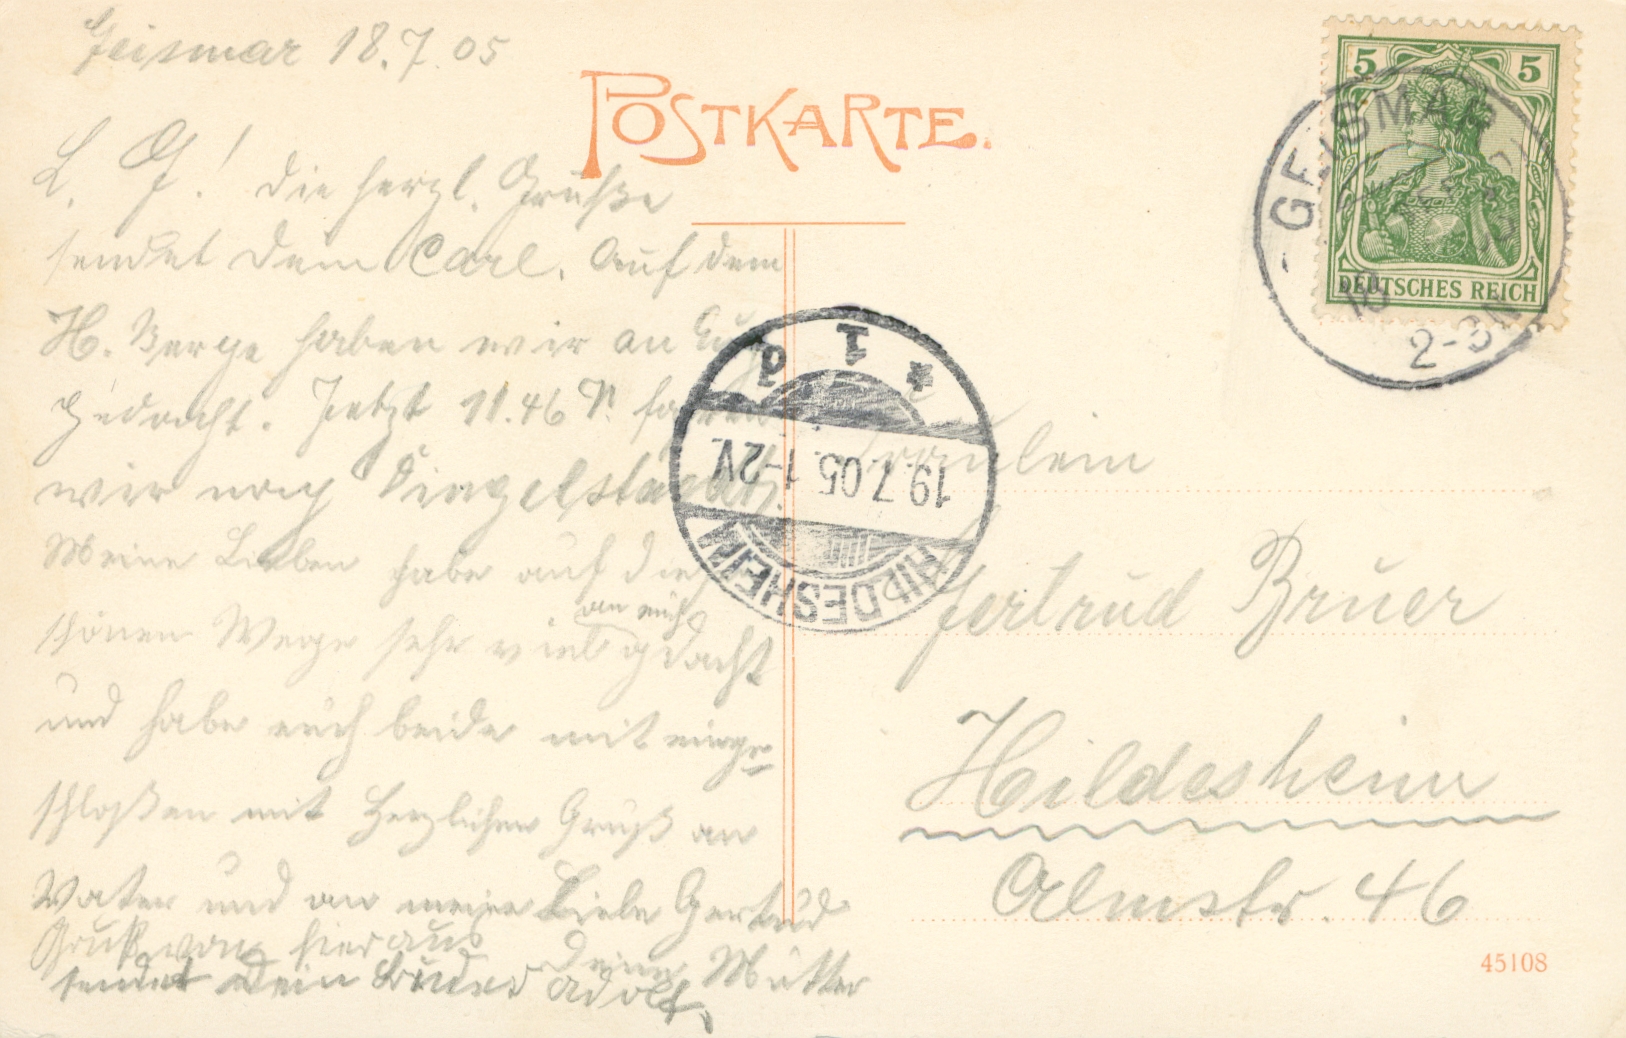 Geismar 18.7.05
POSTKARTE.
L. G! Die herzl. Grüße
sendet Dein Carl. Auf dem
H. Berge haben wir an Euch
gedacht. Jetzt 11.46 N. fahren
wir nach Dingelstaedt
Meine Lieben habe auf die
schönen Wege sehr viel gedacht
an euch
und habe euch beide mit einge
schloßen mit Herzlichen Gruß an
Vater und an meine Liebe Gertrud
Deine Mutter
Gruß von hier aus
sendet Dein Bruder Adolf.
DEUTSCHES REICH
5 5
GEISMAR
2-3N
HILDESHEIM
19.7.05.1-2V.
* 1 d
Fräulein
Gertrud Brüer
Hildesheim
Almstr. 46
45108